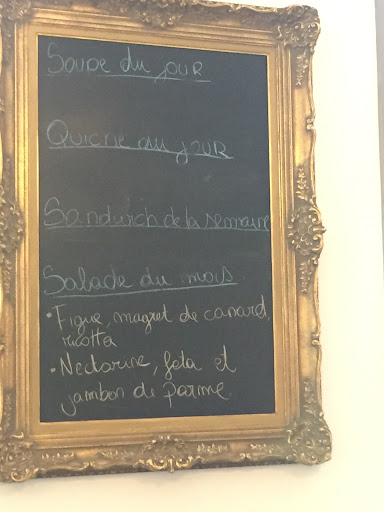 Soupe du jour
Quiche du jour
Sandwich de la semaine
Salade du mois
• Figue, magret de canard,
ricotta
• Nectarine, feta et
jambon de parme.